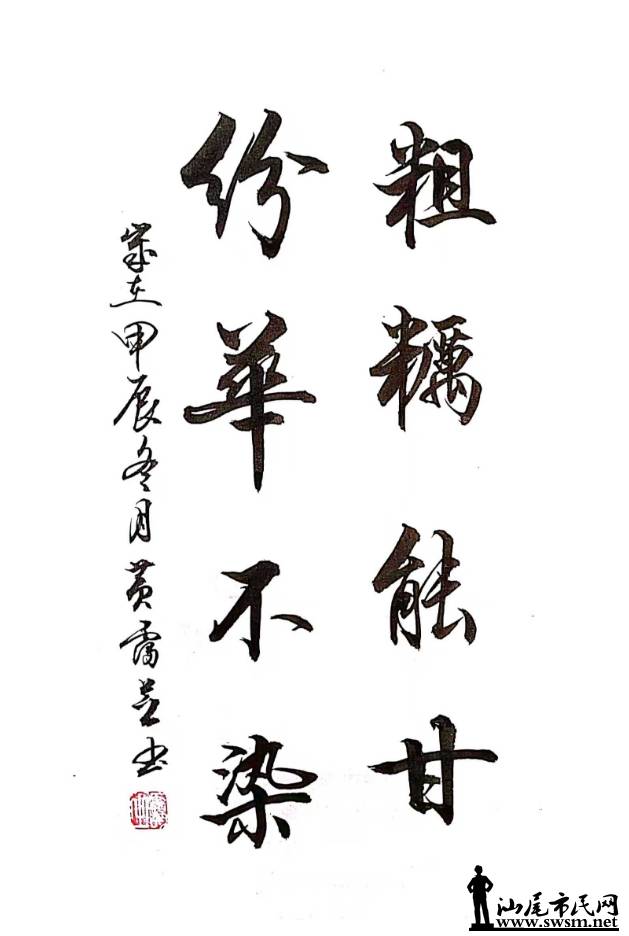 粗糲能甘
紛華不染
歲在甲辰冬月黃露芝书
汕尾市民网
www.swsm.net